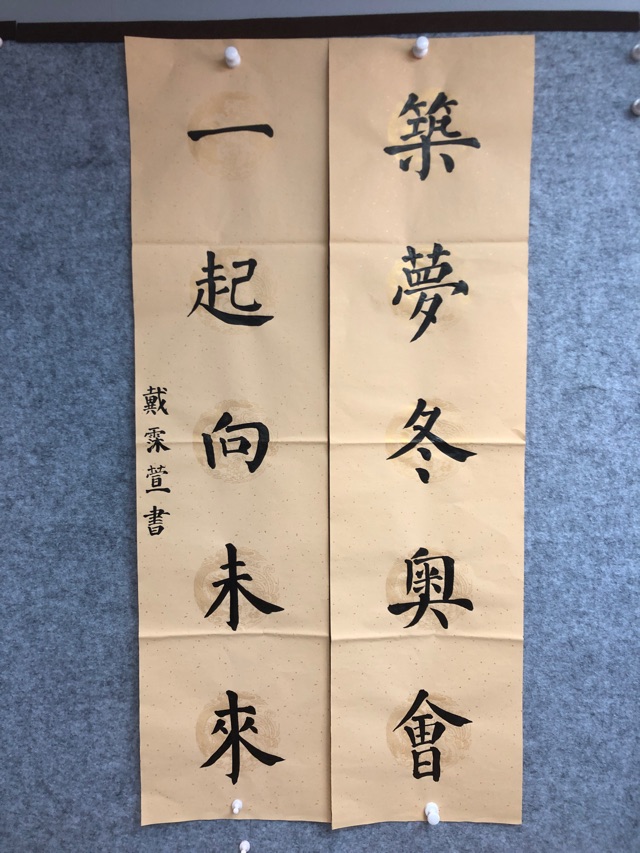 築夢冬奧會
一起向未來
戴霂萱書